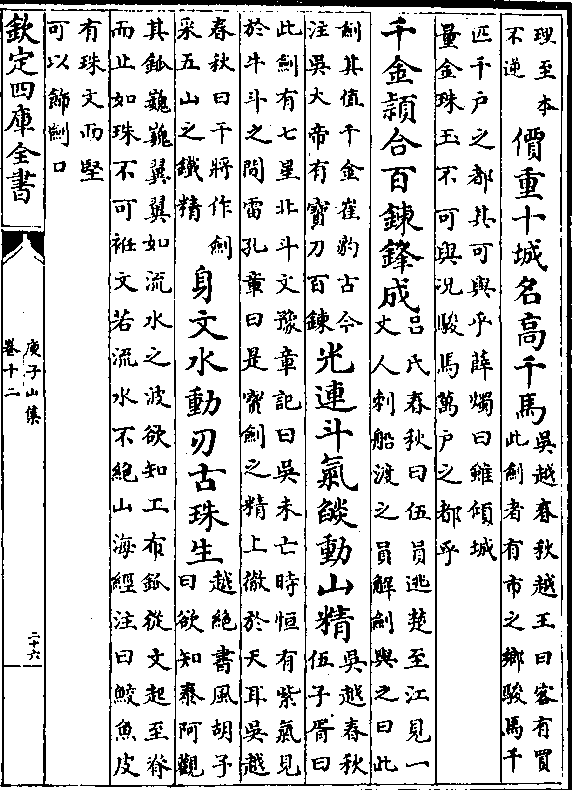 理至本
不逆
價重十城名高千馬
吳越春秋越王曰客有買
此劍者有市之鄉駿馬千
匹千户之都其可與乎薛燭曰雖傾城
量金珠玉不可與况駿馬萬户之都乎
千金頴合百鍊鋒成
吕氏春秋曰伍員逃楚至江見一
丈人刺船渡之員解劍與之曰此
劍其值千金崔豹古今
注吳大帝有寳刀百鍊
光連斗氣燄動山精
吳越春秋
伍子胥曰
此劍有七星北斗文豫章記曰吳未亡時恒有紫氣見
於牛斗之間雷孔章曰是寳劍之精上徹於天耳吳越
春秋曰干將作劍
采五山之鐵精
身文水動刃古珠生
越絶書風胡子
曰欲知泰阿觀
其鈲巍巍翼翼如流水之波欲知工布鈲從文起至脊
而止如珠不可袵文若流水不絶山海經注曰鮫魚皮
有珠文而堅
可以飾劍口
欽定四庫全書
庾子山集
卷十二
二十六